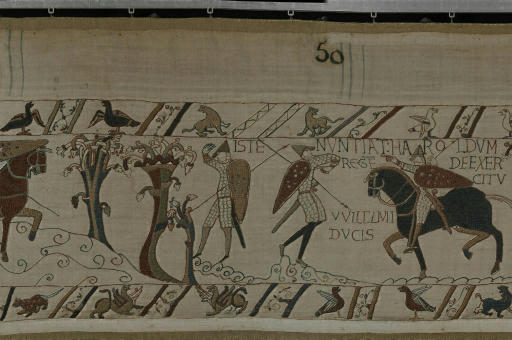 50
ISTE NVNTIAT:HAROLDVM
REGĒ DE EXER
CITV
VVILELMI
DVCIS